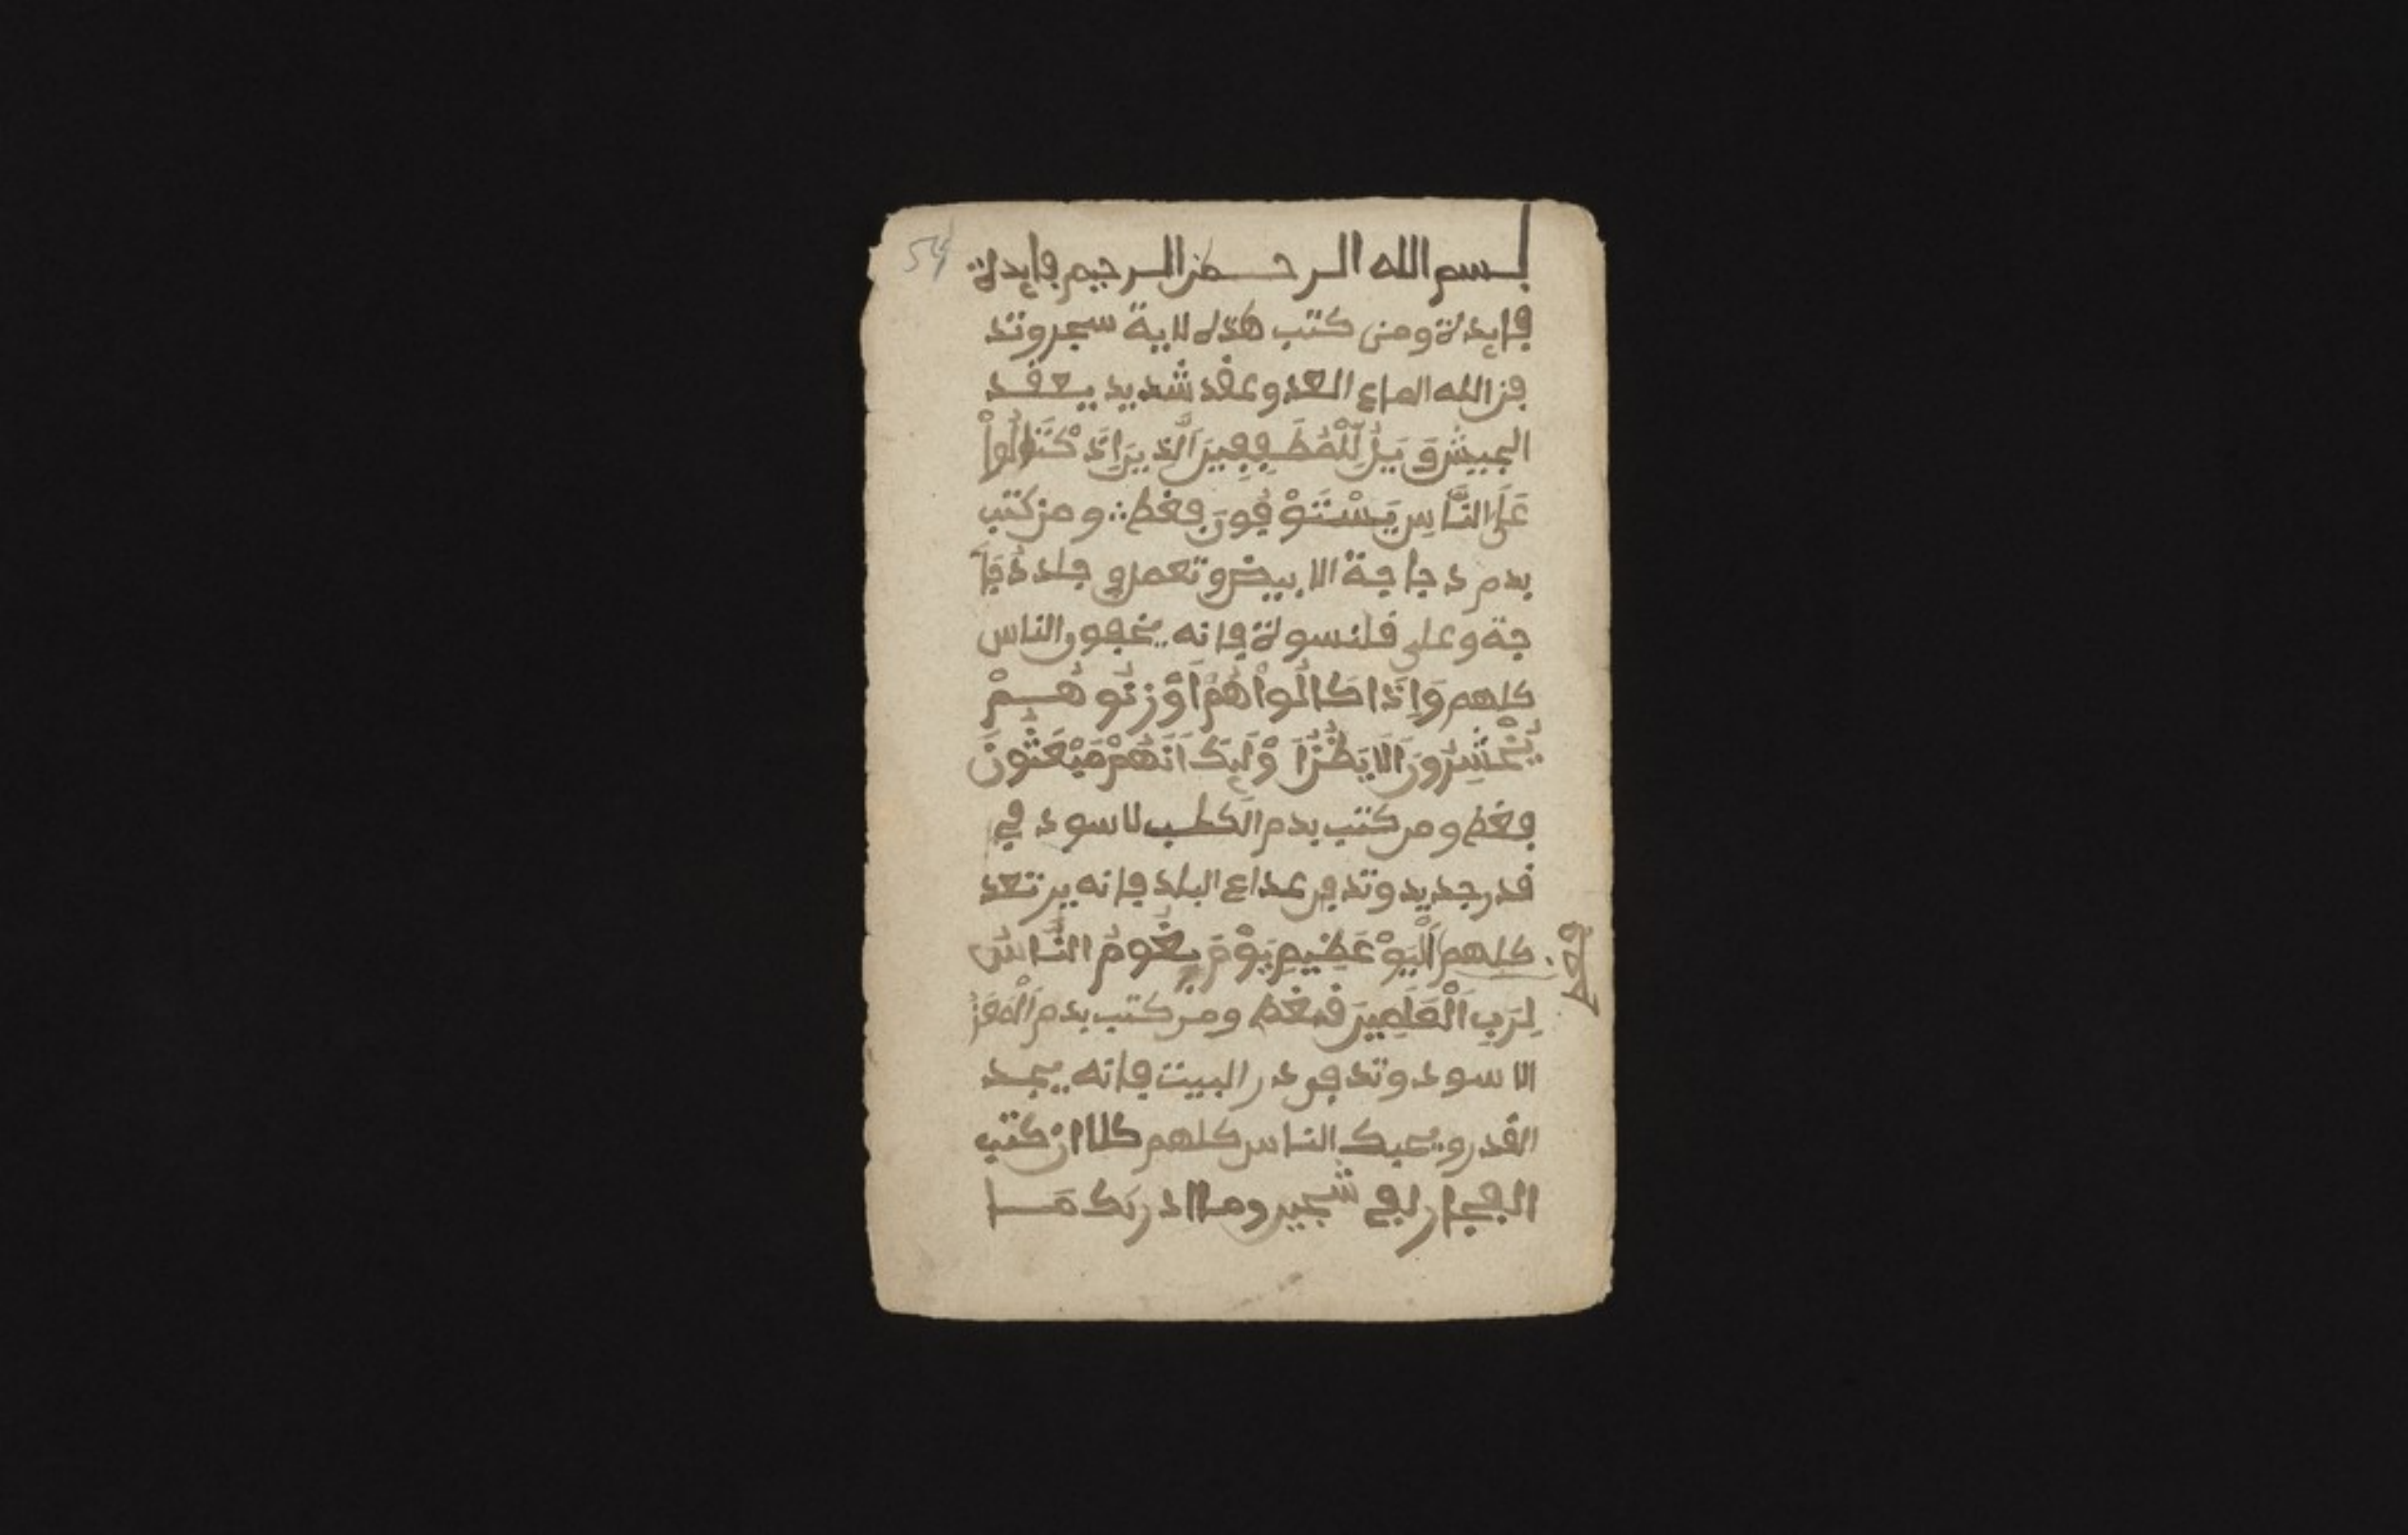 54
بسم الله الرحمن الرحيم فايدة
فايدة ومن كتب هذه لاية سحر وتد
فن الله الماع العدو عقد شديد يعقد
الجيش وَيْلٌ لِّلْمُطَفِّفِينَ الَّذِينَ إِذَ كْتَالُواْ
عَلَى النَّاسِ يَسْتَوْفُونَ فغط ومن كتب
بدم دجاجة الابيض وتعمر في جلد دَجَا
جة وعلى فلنسوة فانه يخجون الناس
كلهم وَإِذَا كَالُواْهُمْ أَوْ زَنُوهُمْ
يُخْسِرُونَ أَلَا يَظُنُّ أُوْلَئِكَ أَنَّهُمْ مَبْعَثُونَ
فغط ومن كتب بدم الكلب لاسود في
قدر جديد وتدفن عداع البلد فانه يرتعد
كلهم لِيَوْ عَظِيمٍ يَوْمَ يَغُومُ النَّاسُ
لِرَبِ الْعَلَمِينَ فغط ومن كتب بدم الْمَعْز
الاسود وتدفن در البيت فانه يجد
القدر ويحبك الناس كلهم كلا ان كتب
الفجار لفي سجين وما ادريك مـا